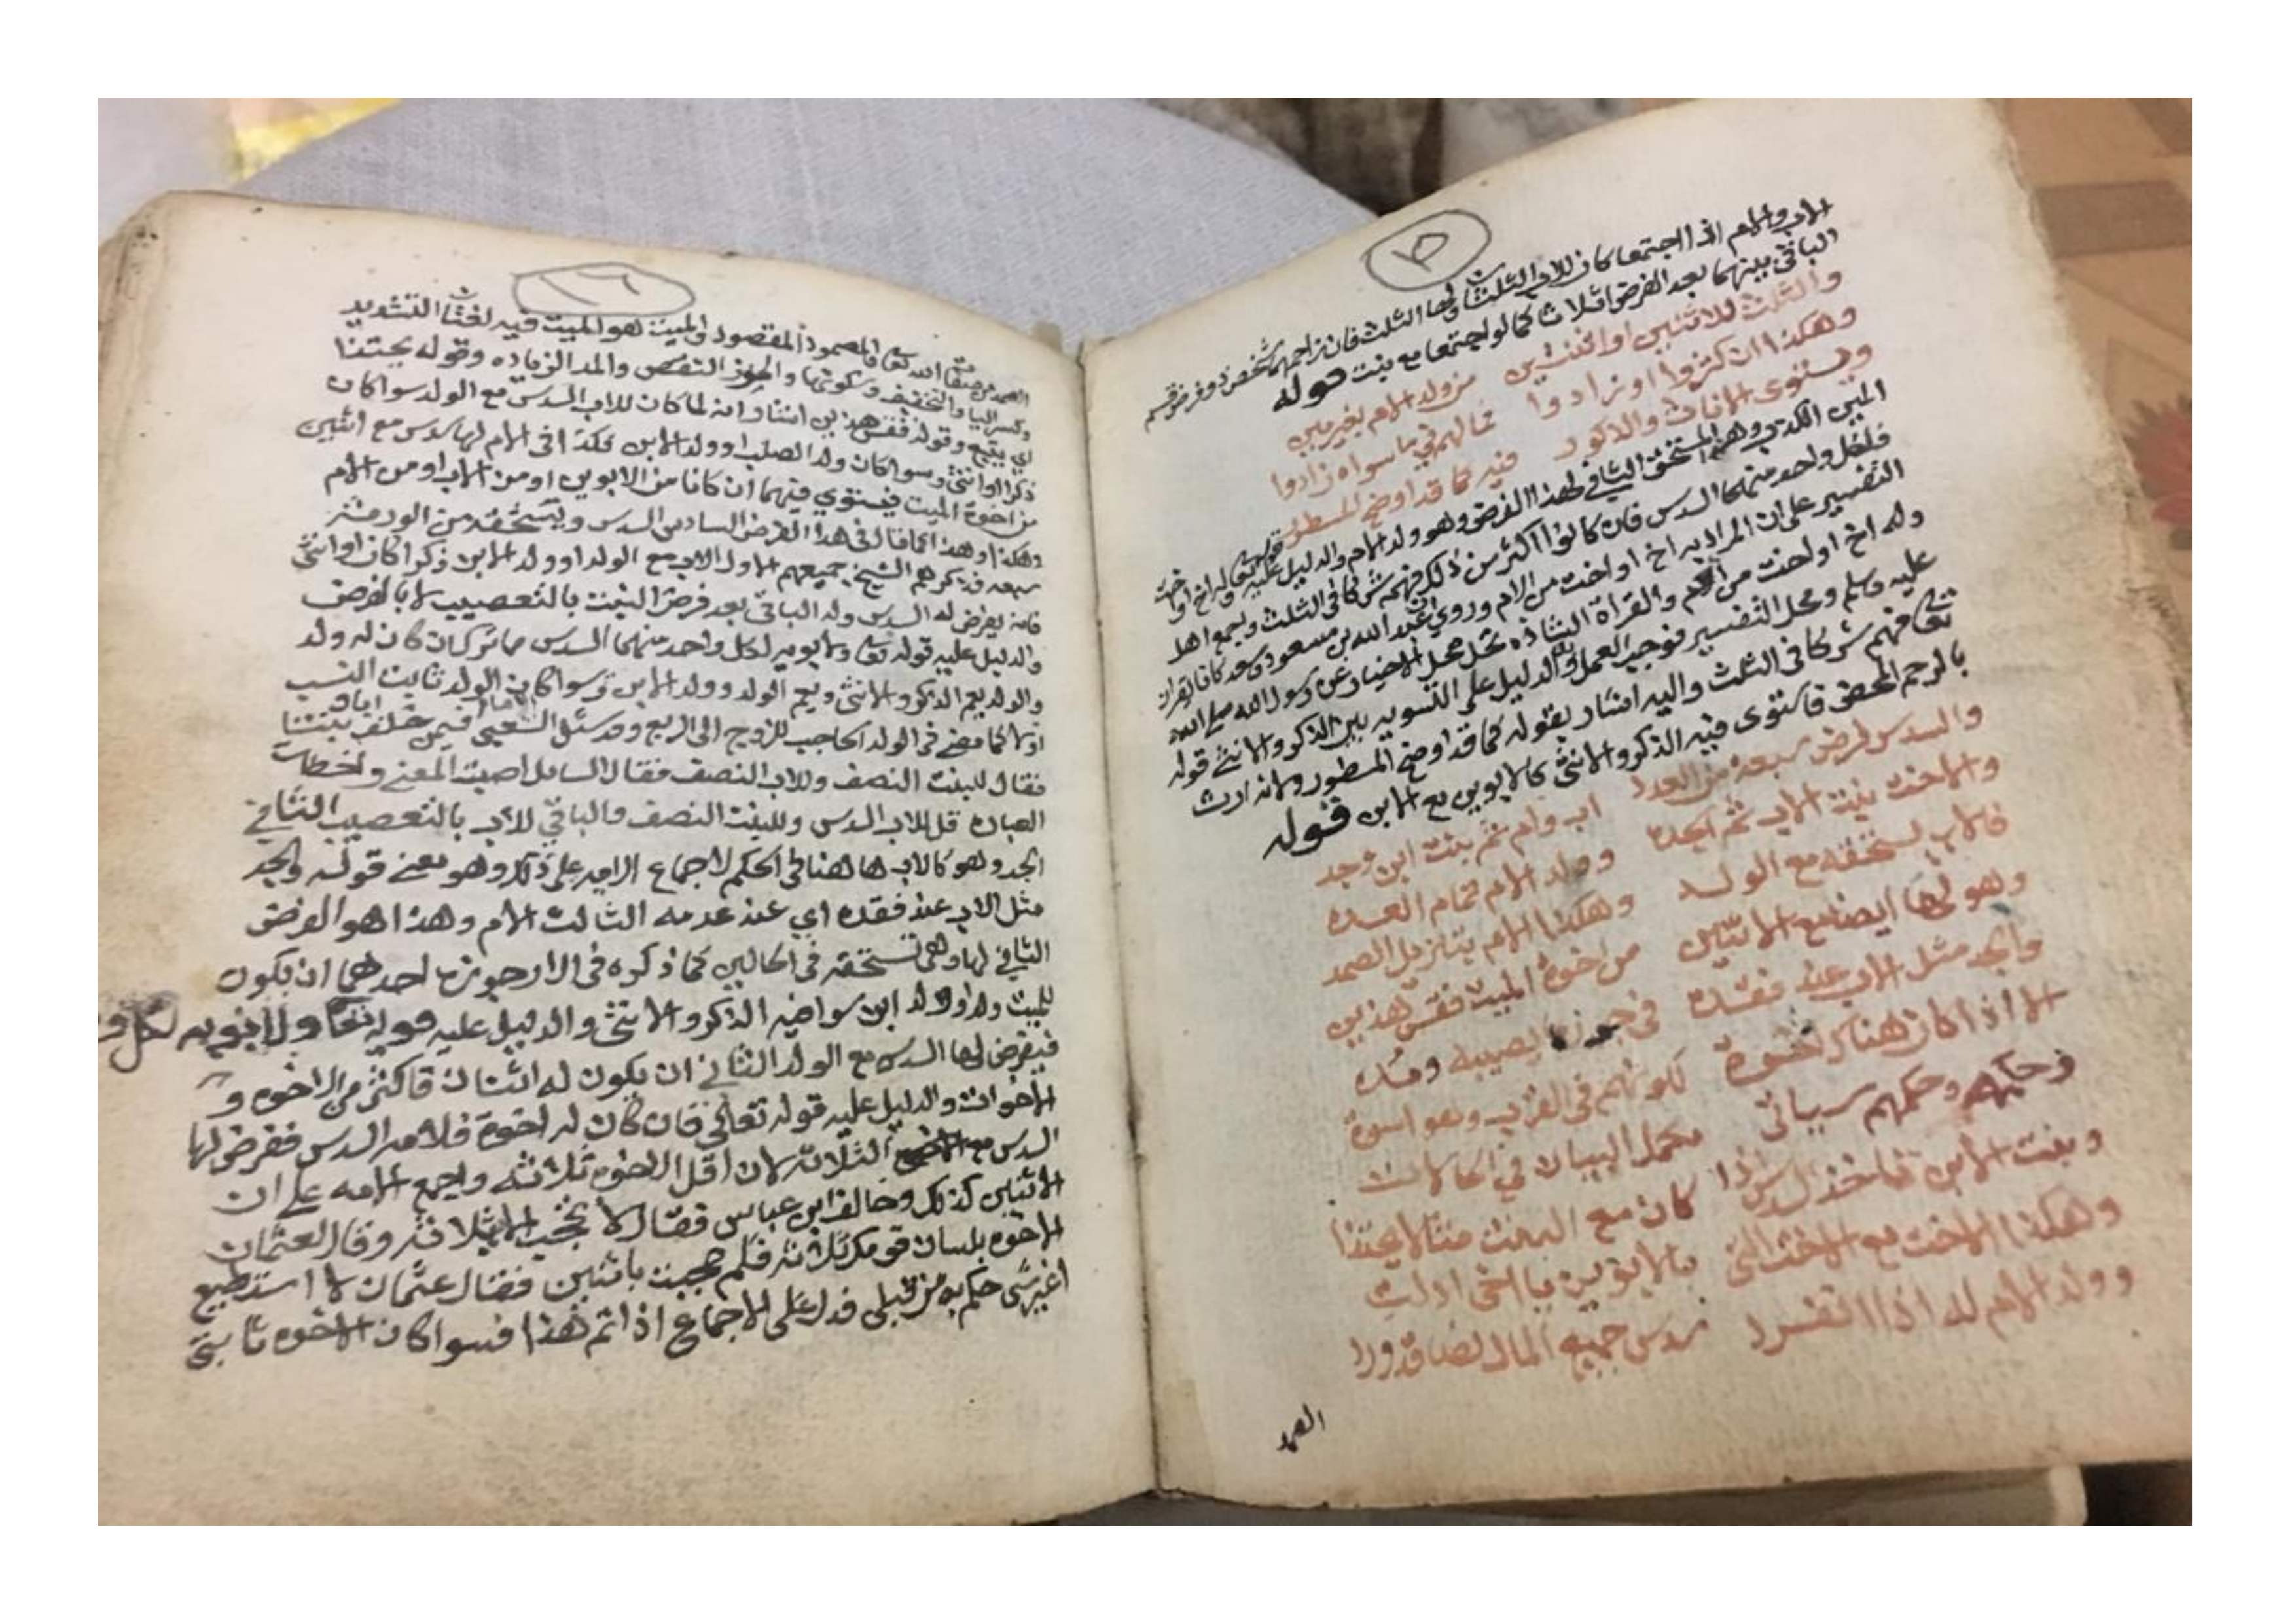 ١٥
الاب والام اذا اجتمعا كان للاب الثلثان ولها الثلث فان زاحمهما شخص ذو فرض قسم
الباقي بينهما بعد الفرض اثلاثا كما لو اجتمعا مع بنت قوله
والثلث للاثنين او اثنتين من ولد الام بغير مين
وهكذا ان كثروا او زادوا فما لهم في ما سواه زادوا
ويستوي الاناث والذكور فيه كما قد اوضح المسطور
المين الكذب وهذا المستحق الثاني لهذا الفرض وهو ولد الام والدليل عليه قوله تعالى وله اخ او اخت
فلكل واحد منهما السدس فان كانوا اكثر من ذلك فهم شركا في الثلث واجمع اهل
التفسير على ان المراد به اخ او اخت من الام وروي ان عبد الله بن مسعود وسعد كانا يقران
وله اخ او اخت من ام والقراة الشاذه تحل محل الاخبار عن رسول الله صلى الله
عليه وسلم ومحل التفسير فوجب العمل والدليل على التسويه بين الذكر والانثى قوله
تعا فهم شركا في الثلث واليه اشار بقوله كما قد اوضح المسطور ولانه ارث
بالرحم المحض فاستوى فيه الذكر والانثى كالابوين مع الابن قوله
والسدس فرض سبعة من العدد اب وام ثم بنت ابن وجد
والاخت بنت الاب ثم الجده وولد الام تمام العده
فالاب يستحقه مع الولد وهكذا الام بتنزيل الصمد
وهو لها ايضا مع الاثنين من اخوة الميت فقس هذين
والجد مثل الاب عند فقده في حوز ما يصيبه ومده
الا اذا كان هناك اخوة لكونهم في القرب وهو اسوة
وحكمه وحكمهم سياتي مكمل البيان في الحالات
وبنت الابن تاخذ السدس اذا كان مع البنت مثالا يحتذا
وهكذا الاخت مع الاخت التي بالابوين يا اخي ادلت
وولد الام له اذا انفرد سدس جميع المال نصا قد ورد
الصمد
١٦
الصمد من صفات الله تعا فالمصمود المقصود والميت هو الميت فيه لغتان التشديد
وكسر اليا والتخفيف وسكونها والحوز التقصص والمد الزياده وقوله يحتذا
اي يتبع وقوله فقس هذين اشار انه لما كان للاب السدس مع الولد سوا كان
ذكرا او انثى وسوا كان ولد الصلب او ولد الابن فكذا في الام لها سدس مع اثنين
من اخوة الميت فيستوي فيهما ان كانا من الابوين او من الاب او من الام
وهكذا وهذا كما قال في هذا الفرض السادس السدس ويستحقه من الورثة
سبعه قد ذكرهم الشيخ جميعهم الاول الاب مع الولد او ولد الابن ذكرا كان او انثى
فانه يفرض له السدس وله الباقي بعد فرض البنت بالتعصيب لا بالفرض
والدليل عليه قوله تعا ولابويه لكل واحد منهما السدس مما ترك ان كان له ولد
والولد يعم الذكر والانثى ويعم الولد وولد الابن وسوا كان الولد ثابت النسب
كما مضى في الولد الحاجب للزوج الى الربع وقد سئل الشعبي فيمن خلف بنتا
فقال للبنت النصف وللاب النصف فقال السايل اصبت المعنى واخطات
العباره قل للاب السدس وللبنت النصف والباقي للاب بالتعصيب الثاني
الجد وهو كالاب ها هنا في الحكم لاجماع الامه على ذلك وهو معنى قوله والجد
مثل الاب عند فقده اي عند عدمه الثالث الام وهذا هو الفرض
الثاني لها وهي تستحقه في الحالين كما ذكره في الارجوزه احدهما ان يكون
للميت ولد او ولد ابن سوا فيه الذكر والانثى والدليل عليه قوله تعا ولابويه لكل و
فيفرض لها السدس مع الولد الثاني ان يكون له اثنان فاكثر من الاخوه و
الاخوات والدليل عليه قوله تعالى فان كان له اخوة فلامه السدس ففرض لها
السدس مع الثلاثه لان اقل الاخوه ثلاثه واجمع الامه على ان
الاثنين كذلك وخالف ابن عباس فقال لا تحجب الا بثلاثة وقال لعثمان
الاخوه بلسان قومك ثلاثه فلم حجبت باثنين فقال عثمان لا استطيع
اغير شي حكم به من قبلي فدل على الاجماع اذا تم هذا فسوا كان الاخوه ثابتي